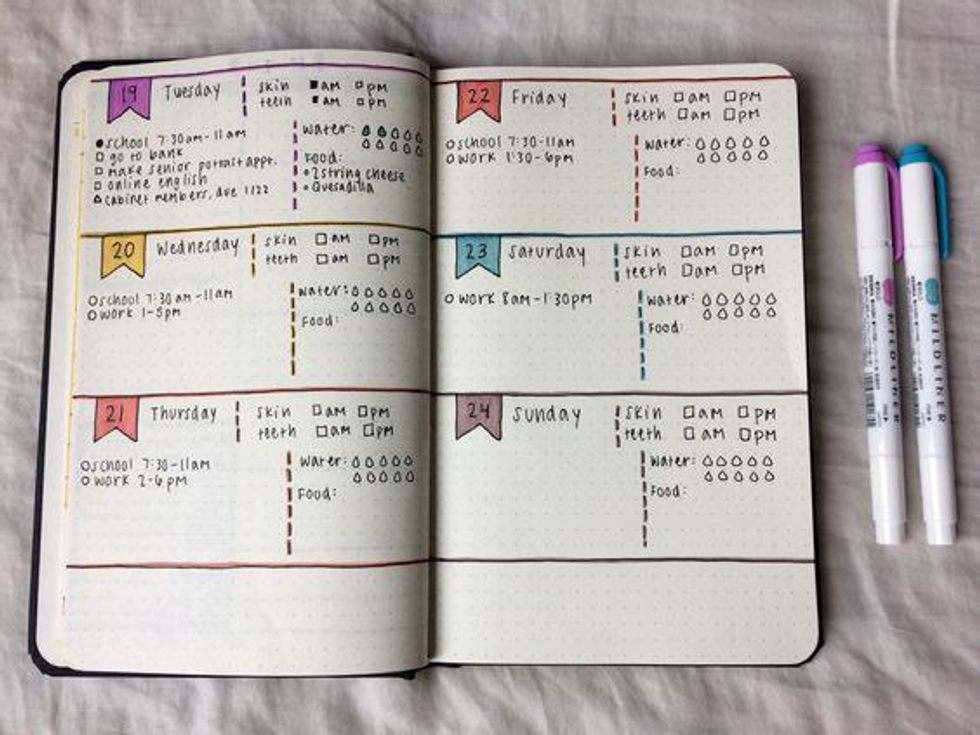 19 Tuesday
skin am pm
teeth am pm
school 7:30am-11am
go to bank
make senior potrait appt.
online english
cabinet members, due 1/22
water:
Food:
2 string cheese
Quesadilla
20 Wednesday
skin am pm
teeth am pm
school 7:30am-11am
work 1-5pm
water:
Food:
21 Thursday
skin am pm
teeth am pm
school 7:30-11am
work 2-6pm
water:
Food:
22 Friday
skin am pm
teeth am pm
school 7:30-11am
work 1:30-6pm
water:
Food:
23 Saturday
skin am pm
teeth am pm
work 8am-1:30pm
water:
Food:
24 Sunday
skin am pm
teeth am pm
water:
Food:
MILDLINER
MILDLINER